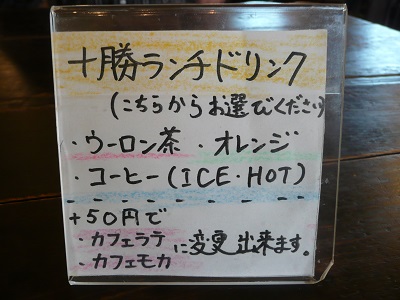 十勝ランチドリンク
(こちらからお選びください)
・ウーロン茶 ・オレンジ
・コーヒー(ICE・HOT)
+50円で
・カフェラテ
・カフェモカ に変更出来ます。